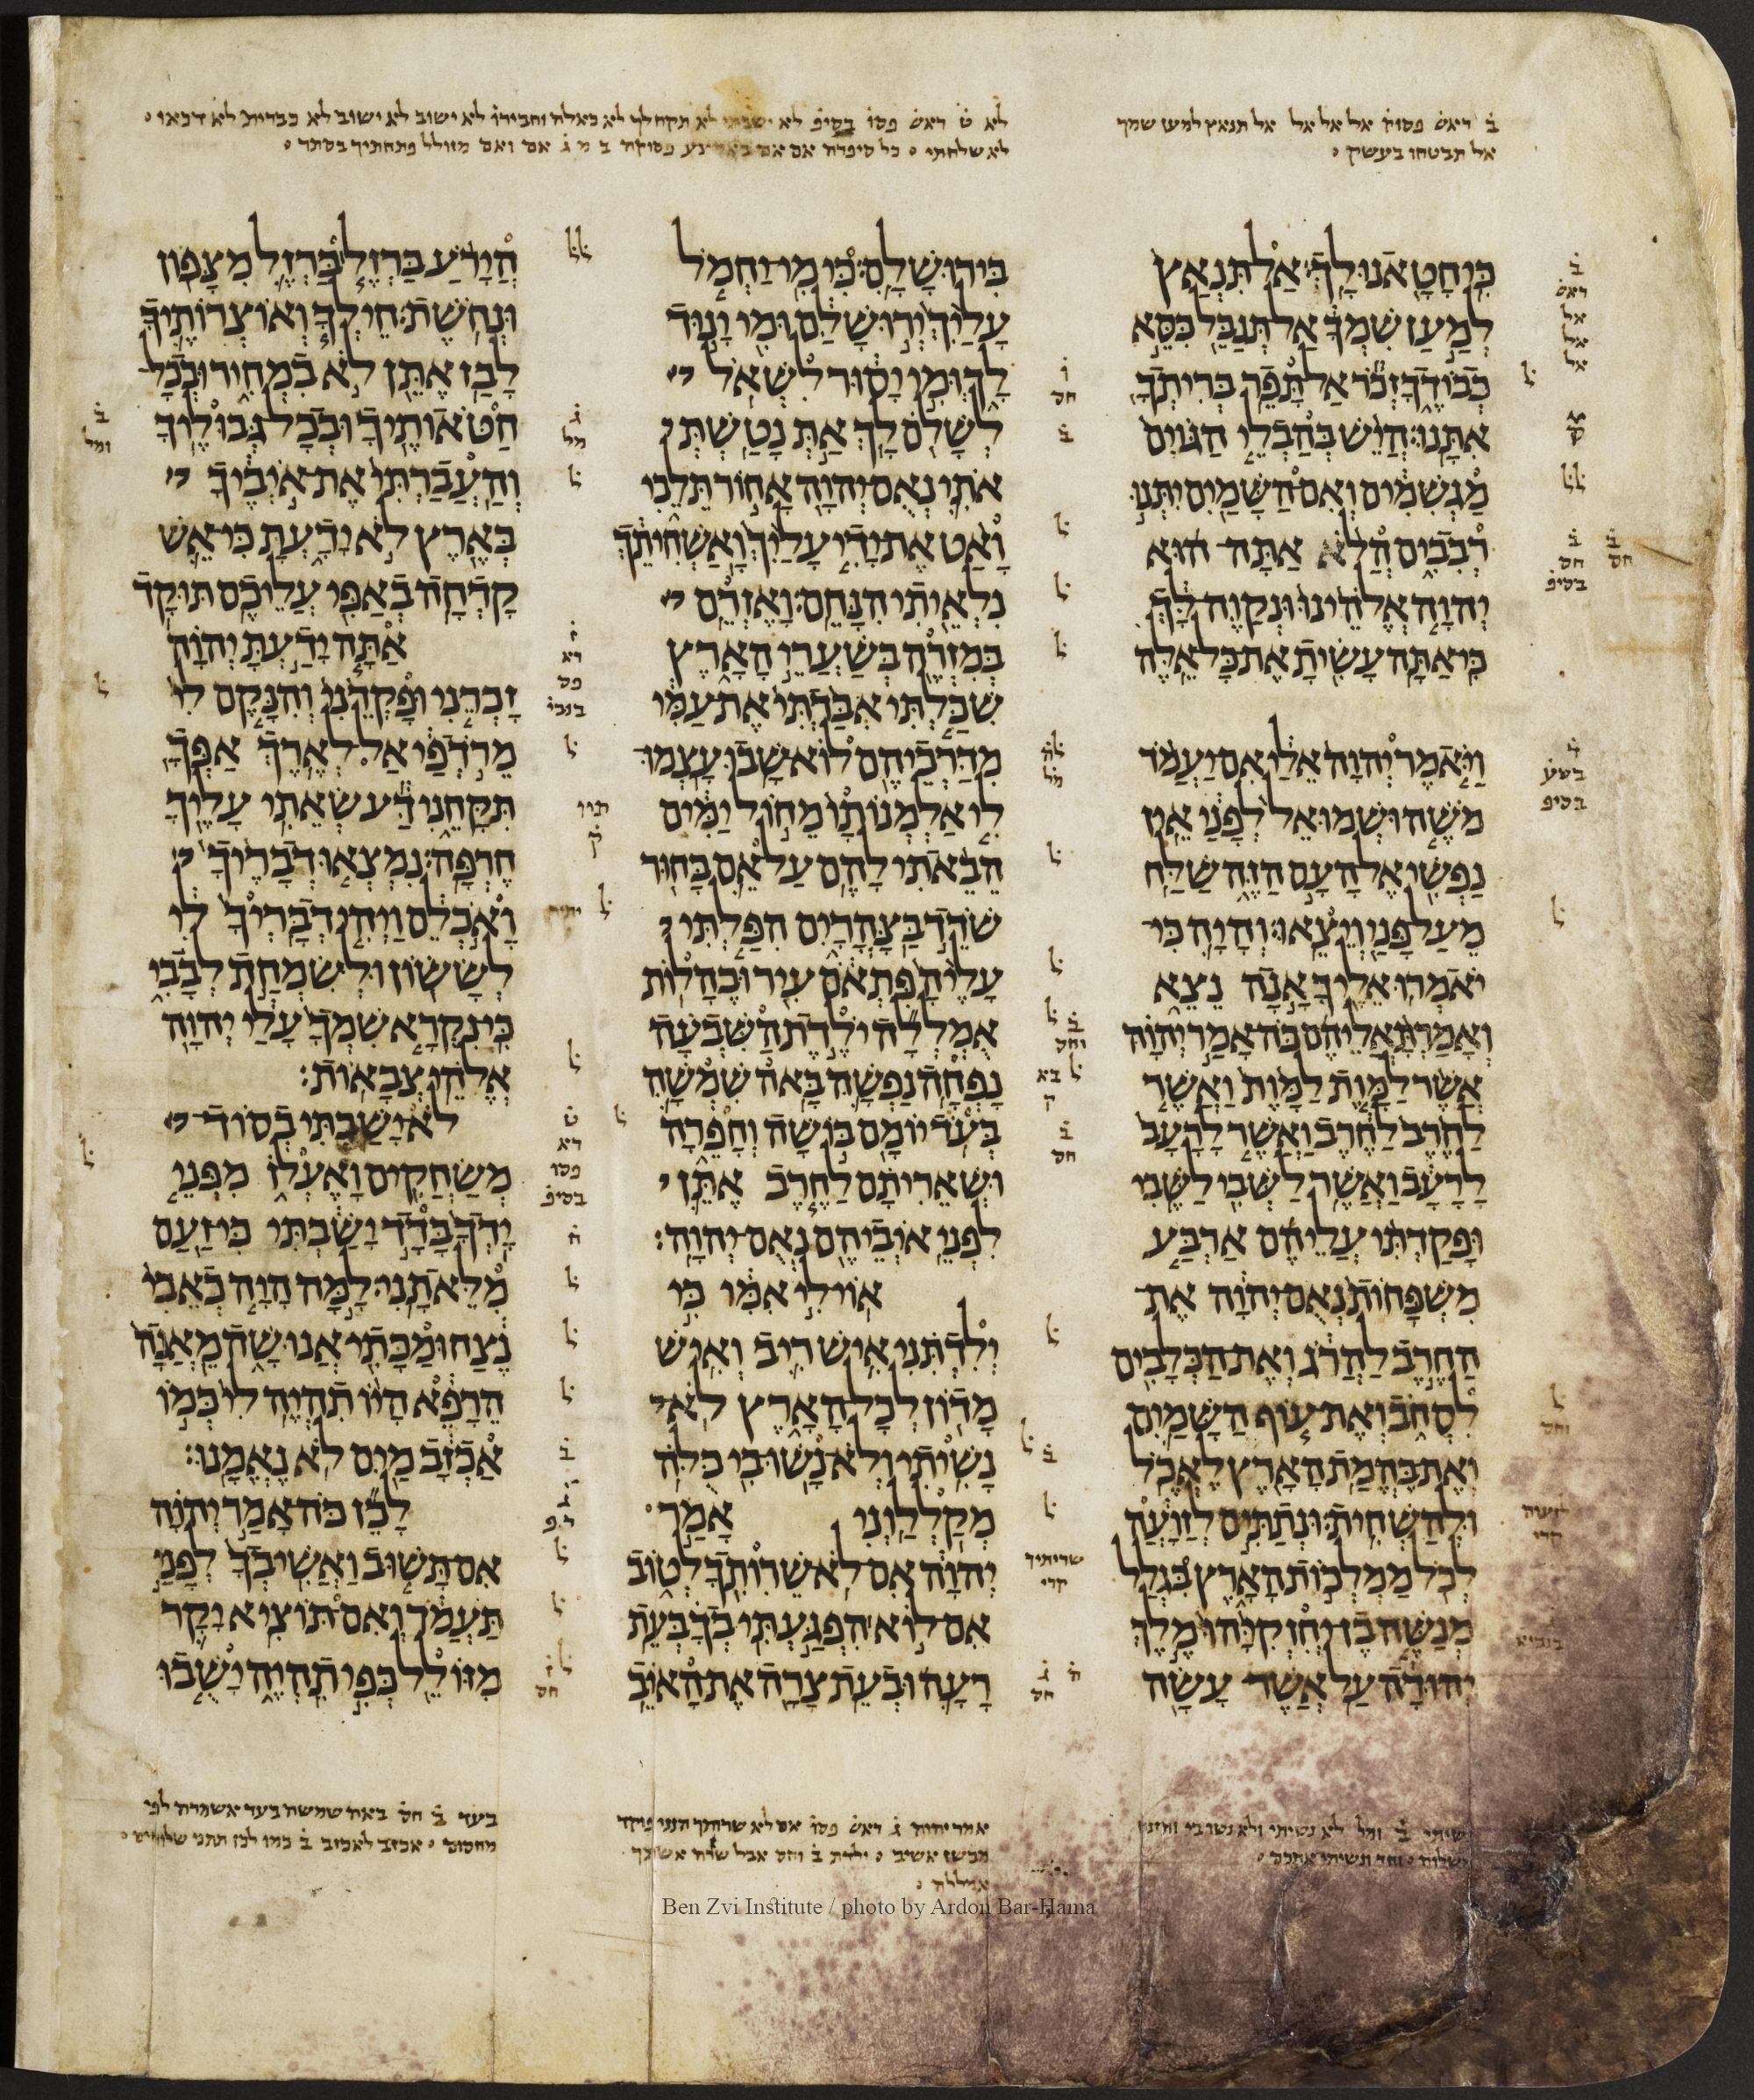 ב ראש פסוק אל אל אל אל תנאץ למען שמך
אל תבטחו בעשק
לא ט ראש פסו בסיפ לא ישבתי לא תקח לך לא כאלה וחבירו לא ישוב לא ישוב לא כברית לא דכאו
לא שלחתי כל סיפרה אם אם פסוקה ב מ ג אם ואם מזולל פתחתיך בסתר
כִּי חָטָאנוּ לָךְ׃ אַל תִּנְאַץ
לְמַעַן שִׁמְךָ אַל תְּנַבֵּל כִּסֵּא
כְבוֹדֶךָ זְכֹר אַל תָּפֵר בְּרִיתְךָ
אִתָּנוּ׃ הֲיֵשׁ בְּהַבְלֵי הַגּוֹיִם
מַגְשִׁמִים וְאִם הַשָּׁמַיִם יִתְּנוּ
רְבִבִים הֲלֹא אַתָּה הוּא
יְהוָה אֱלֹהֵינוּ וּנְקַוֶּה לָּךְ
כִּי אַתָּה עָשִׂיתָ אֶת כָּל אֵלֶּה
וַיֹּאמֶר יְהוָה אֵלַי אִם יַעֲמֹד
מֹשֶׁה וּשְׁמוּאֵל לְפָנַי אֵין
נַפְשִׁי אֶל הָעָם הַזֶּה שַׁלַּח
מֵעַל פָּנַי וְיֵצֵאוּ׃ וְהָיָה כִּי
יֹאמְרוּ אֵלֶיךָ אָנָה נֵצֵא
וְאָמַרְתָּ אֲלֵיהֶם כֹּה אָמַר יְהוָה
אֲשֶׁר לַמָּוֶת לַמָּוֶת וַאֲשֶׁר
לַחֶרֶב לַחֶרֶב וַאֲשֶׁר לָרָעָב
לָרָעָב וַאֲשֶׁר לַשְּׁבִי לַשֶּׁבִי׃
וּפָקַדְתִּי עֲלֵיהֶם אַרְבַּע
מִשְׁפָּחוֹת נְאֻם יְהוָה אֶת
הַחֶרֶב לַהֲרֹג וְאֶת הַכְּלָבִים
לִסְחֹב וְאֶת עוֹף הַשָּׁמַיִם
וְאֶת בֶּהֱמַת הָאָרֶץ לֶאֱכֹל
וּלְהַשְׁחִית׃ וּנְתַתִּים לְזַוֲעָה
לְכֹל מַמְלְכוֹת הָאָרֶץ בִּגְלַל
מְנַשֶּׁה בֶן יְחִזְקִיָּהוּ מֶלֶךְ
יְהוּדָה עַל אֲשֶׁר עָשָׂה
בִּירוּשָׁלִָם׃ כִּי מִי יַחְמֹל
עָלַיִךְ יְרוּשָׁלִַם וּמִי יָנוּד
לָךְ וּמִי יָסוּר לִשְׁאֹל
לְשָׁלֹם לָךְ׃ אַתְּ נָטַשְׁתְּ
אֹתִי נְאֻם יְהוָה אָחוֹר תֵּלֵכִי
וָאַט אֶת יָדִי עָלַיִךְ וָאַשְׁחִיתֵךְ
נִלְאֵיתִי הִנָּחֵם׃ וָאֶזְרֵם
בְּמִזְרֶה בְּשַׁעֲרֵי הָאָרֶץ
שִׁכַּלְתִּי אִבַּדְתִּי אֶת עַמִּי
מִדַּרְכֵיהֶם לוֹא שָׁבוּ׃ עָצְמוּ
לִי אַלְמְנוֹתָו מֵחוֹל יַמִּים
הֵבֵאתִי לָהֶם עַל אֵם בָּחוּר
שֹׁדֵד בַּצָּהֳרָיִם הִפַּלְתִּי
עָלֶיהָ פִּתְאֹם עִיר וּבֶהָלוֹת׃
אֻמְלְלָה יֹלֶדֶת הַשִּׁבְעָה
נָפְחָה נַפְשָׁהּ בָּאה שִׁמְשָׁהּ
בְּעֹד יוֹמָם בּוֹשָׁה וְחָפֵרָה
וּשְׁאֵרִיתָם לַחֶרֶב אֶתֵּן
לִפְנֵי אֹיְבֵיהֶם נְאֻם יְהוָה׃
אוֹי לִי אִמִּי כִּי
יְלִדְתִּנִי אִישׁ רִיב וְאִישׁ
מָדוֹן לְכָל הָאָרֶץ לֹא
נָשִׁיתִי וְלֹא נָשׁוּ בִי כֻּלֹּה
מְקַלְלַוְנִי׃ אָמַר
יְהוָה אִם לֹא שֵׁרוֹתִךָ לְטוֹב
אִם לוֹא הִפְגַּעְתִּי בְךָ בְּעֵת
רָעָה וּבְעֵת צָרָה אֶת הָאֹיֵב׃
הֲיָרֹעַ בַּרְזֶל בַּרְזֶל מִצָּפוֹן
וּנְחֹשֶׁת׃ חֵילְךָ וְאוֹצְרוֹתֶיךָ
לָבַז אֶתֵּן לֹא בִמְחִיר וּבְכָל
חַטֹּאותֶיךָ וּבְכָל גְּבוּלֶיךָ׃
וְהַעֲבַרְתִּי אֶת אֹיְבֶיךָ
בְּאֶרֶץ לֹא יָדָעְתָּ כִּי אֵשׁ
קָדְחָה בְאַפִּי עֲלֵיכֶם תּוּקָד׃
אַתָּה יָדַעְתָּ יְהוָה
זָכְרֵנִי וּפָקְדֵנִי וְהִנָּקֶם לִי
מֵרֹדְפַי אַל לְאֶרֶךְ אַפְּךָ
תִּקָּחֵנִי דַּע שְׂאֵתִי עָלֶיךָ
חֶרְפָּה׃ נִמְצְאוּ דְבָרֶיךָ
וָאֹכְלֵם וַיְהִי דְבָרְיךָ לִי
לְשָׂשׂוֹן וּלְשִׂמְחַת לְבָבִי
כִּי נִקְרָא שִׁמְךָ עָלַי יְהוָה
אֱלֹהֵי צְבָאוֹת׃
לֹא יָשַׁבְתִּי בְסוֹד
מְשַׂחֲקִים וָאֶעְלֹז מִפְּנֵי
יָדְךָ בָּדָד יָשַׁבְתִּי כִּי זַעַם
מִלֵּאתָנִי׃ לָמָּה הָיָה כְאֵבִי
נֶצַח וּמַכָּתִי אֲנוּשָׁה מֵאֲנָה
הֵרָפֵא הָיוֹ תִהְיֶה לִי כְּמוֹ
אַכְזָב מַיִם לֹא נֶאֱמָנוּ׃
לָכֵן כֹּה אָמַר יְהוָה
אִם תָּשׁוּב וַאֲשִׁיבְךָ לְפָנַי
תַּעֲמֹד וְאִם תּוֹצִיא יָקָר
מִזּוֹלֵל כְּפִי תִהְיֶה יָשֻׁבוּ
ב ומל לא נשיתי ולא נשו בי
אמר יהוה ג ראש פסו אם לא שרותך הנני פוקד
בעד ב חס באה שמשה בעד אשמרה לפי
מחסום אכזב לאכזב ב כמו לכן תתני
Ben Zvi Institute / photo by Ardon Bar-Hama